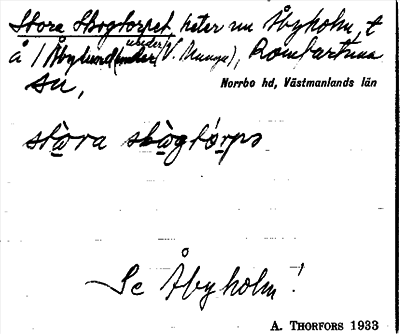 Stora Skogtorpet heter nu Åbyholm, t
å 1 Åbylund (under V. Munga), Romfartuna
sn,
Norrbo hd, Västmanlands län
stòra skògtórps
Se Åbyholm!
A. THORFORS 1933